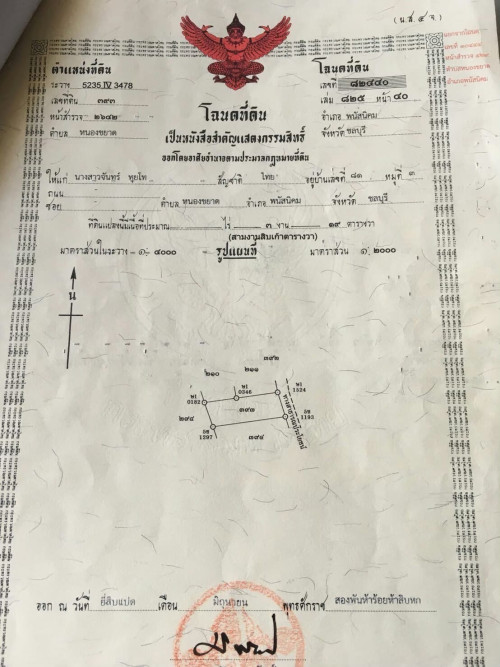 (น.ส. ๔ จ.)
ตำแหน่งที่ดิน
ระวาง 5235 IV 3478
เลขที่ดิน ๓๙๓
หน้าสำรวจ ๒๖๔๒
ตำบล หนองขยาด
โฉนดที่ดิน
เลขที่ ๘๒๔๔๐
เล่ม ๘๒๕ หน้า ๔๐
อำเภอ พนัสนิคม
จังหวัด ชลบุรี
โฉนดที่ดิน
เป็นหนังสือสำคัญแสดงกรรมสิทธิ์
ออกโดยอาศัยอำนาจตามประมวลกฎหมายที่ดิน
ให้แก่ นางสาวจันทร์ พูยไท สัญชาติ ไทย อยู่บ้านเลขที่ ๘๑ หมู่ที่ ๓
ถนน
ซอย ตำบล หนองขยาด อำเภอ พนัสนิคม จังหวัด ชลบุรี
ที่ดินแปลงนี้มีเนื้อที่ประมาณ ไร่ ๓ งาน ๑๙ ตารางวา
(สามงานสิบเก้าตารางวา)
มาตราส่วนในระวาง ๑: ๔๐๐๐ รูปแผนที่ มาตราส่วน ๑: ๒๐๐๐
น
๓๙๒
๒๑๐ ๒๑๑
พ1 0182
พ1 0346
พ1 1524
๒๙๔
๓๙๓
ทางสาธารณประโยชน์
1193
1297
๓๙๔
ออก ณ วันที่ ยี่สิบแปด เดือน มิถุนายน พุทธศักราช สองพันห้าร้อยห้าสิบหก